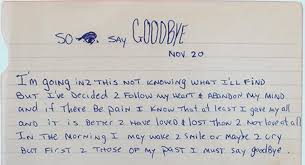 SO say GOODBYE
NOV. 20
I'm going in2 this not knowing what I'll find
But I've decided 2 follow my heart & abandon my mind
and if there be pain I know that at least I gave my all
and it is better 2 have loved & lost than 2 not love at all
In the morning I may wake 2 smile or maybe 2 cry
But first 2 those of my past I must say goodbye